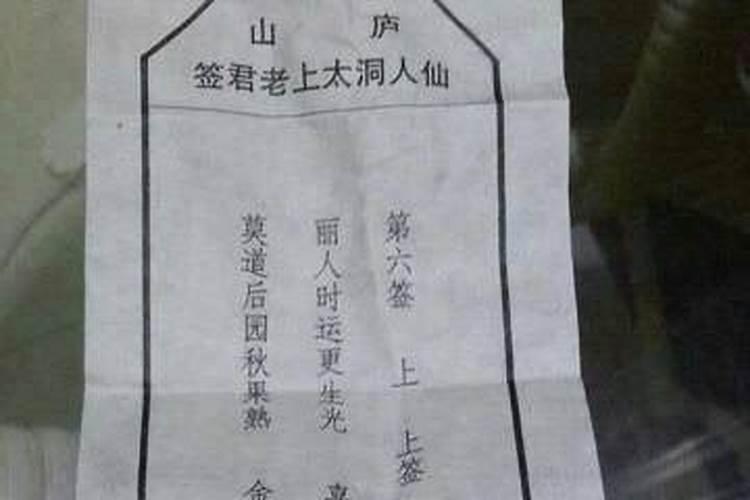 庐山
仙人洞太上老君签
第六签 上上签
丽人时运更生光
莫道后园秋果熟 金